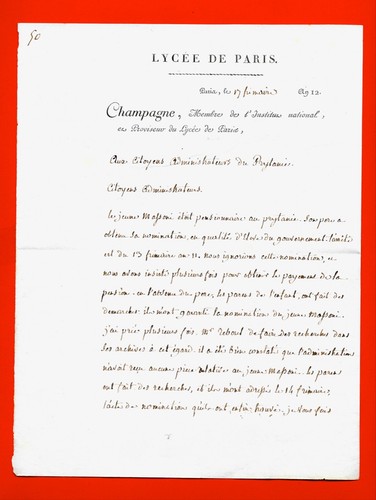 50
LYCÉE DE PARIS.
Paris, le 17 frimaire An 12.
Champagne, Membre de l'Institut national,
et Proviseur du Lycée de Paris,
Aux Citoyens Administrateurs du Prytanée
Citoyens Administrateurs.
le jeune Massoni étoit pensionnaire au prytanée. Son pere a
obtenu sa nomination, en qualité d'Eleve du gouvernement. l'arrêté
est du 13 frimaire an 11. nous ignorions cette nomination, et
nous avons insisté plusieurs fois pour obtenir le payement de la
pension. en l'absence du pere, les parens de l'enfant, ont fait des
demarches. ils m'ont garanti la nomination du jeune Massoni.
j'ai prié plusieurs fois Mr. Reboul de faire des recherches dans
ses archives à cet égard. il a été bien constaté que l'administration
n'avoit reçu aucune piece relative au jeune Massoni. les parens
ont fait des recherches, et ils m'ont adressé le 14 frimaire,
l'acte de nomination qu'ils ont enfin trouvé. je vous fais